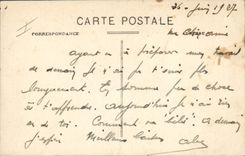 26 Juin 1927
CARTE POSTALE
CORRESPONDANCE
ma chère amie
ayant eu à préparer mon travail
de demain je n'ai pu t'écrire plus
longuement. En somme peu de chose
à t'apprendre. Aujourd'hui je n'ai rien
de toi. Comment va "bébé" à demain
j'espère Meilleurs baisers